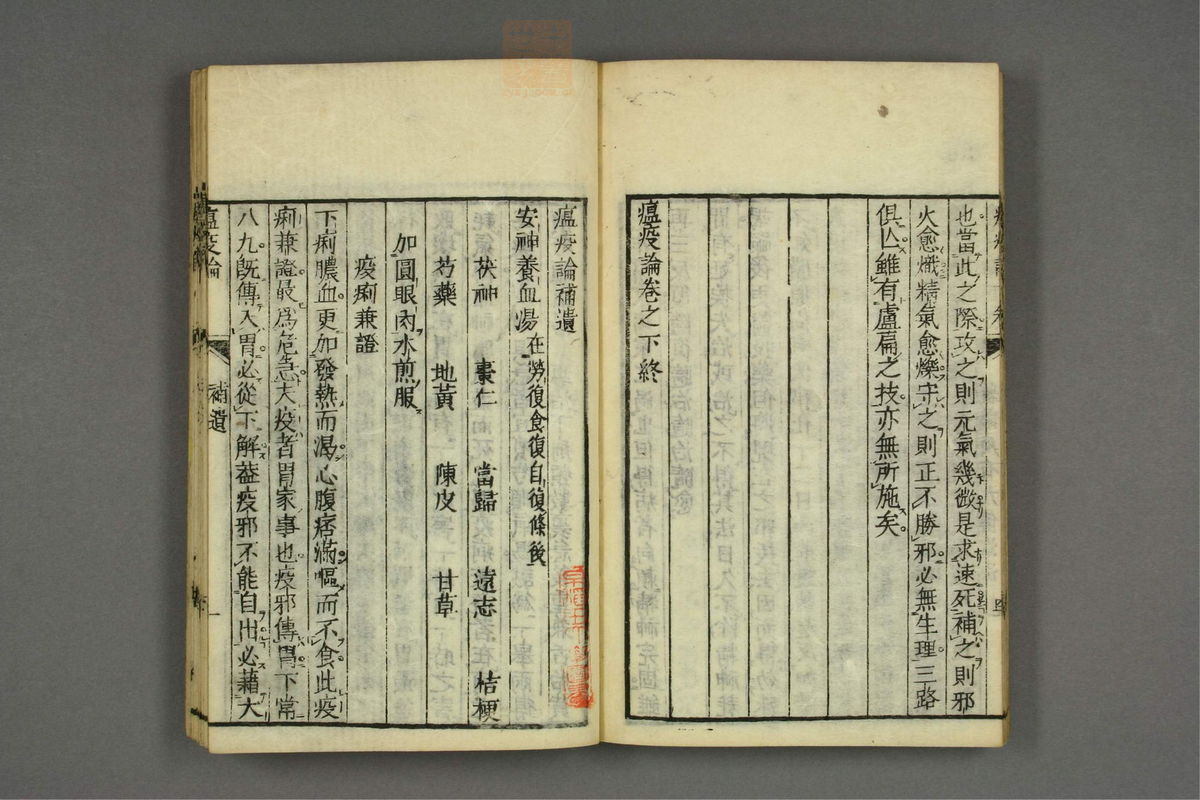 也當此之際攻之則元氣幾微是求速死補之則邪
火愈熾精氣愈爍守之則正不勝邪必無生理三路
俱亾雖有盧扁之技亦無所施矣
瘟疫論卷之下終
瘟疫論補遺
安神養血湯在勞復食復自復條後
茯神 棗仁 當歸 遠志 桔梗
芍藥 地黃 陳皮 甘草
加圓眼肉水煎服
疫痢兼證
下痢膿血更加發熱而渴心腹痞滿嘔而不食此疫
痢兼證最爲危急夫疫者胃家事也疫邪傳胃下常
八九既傳入胃必從下解蓋疫邪不能自出必藉大
瘟疫論 補遺 一